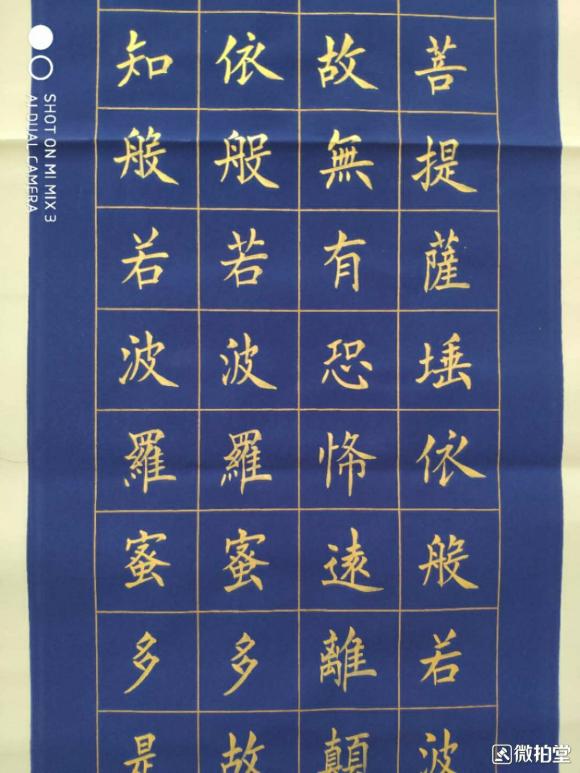 菩提薩埵依般若波
故無有恐怖遠離顛
依般若波羅蜜多故
知般若波羅蜜多是
SHOT ON MI MIX 3
AI DUAL CAMERA
微拍堂